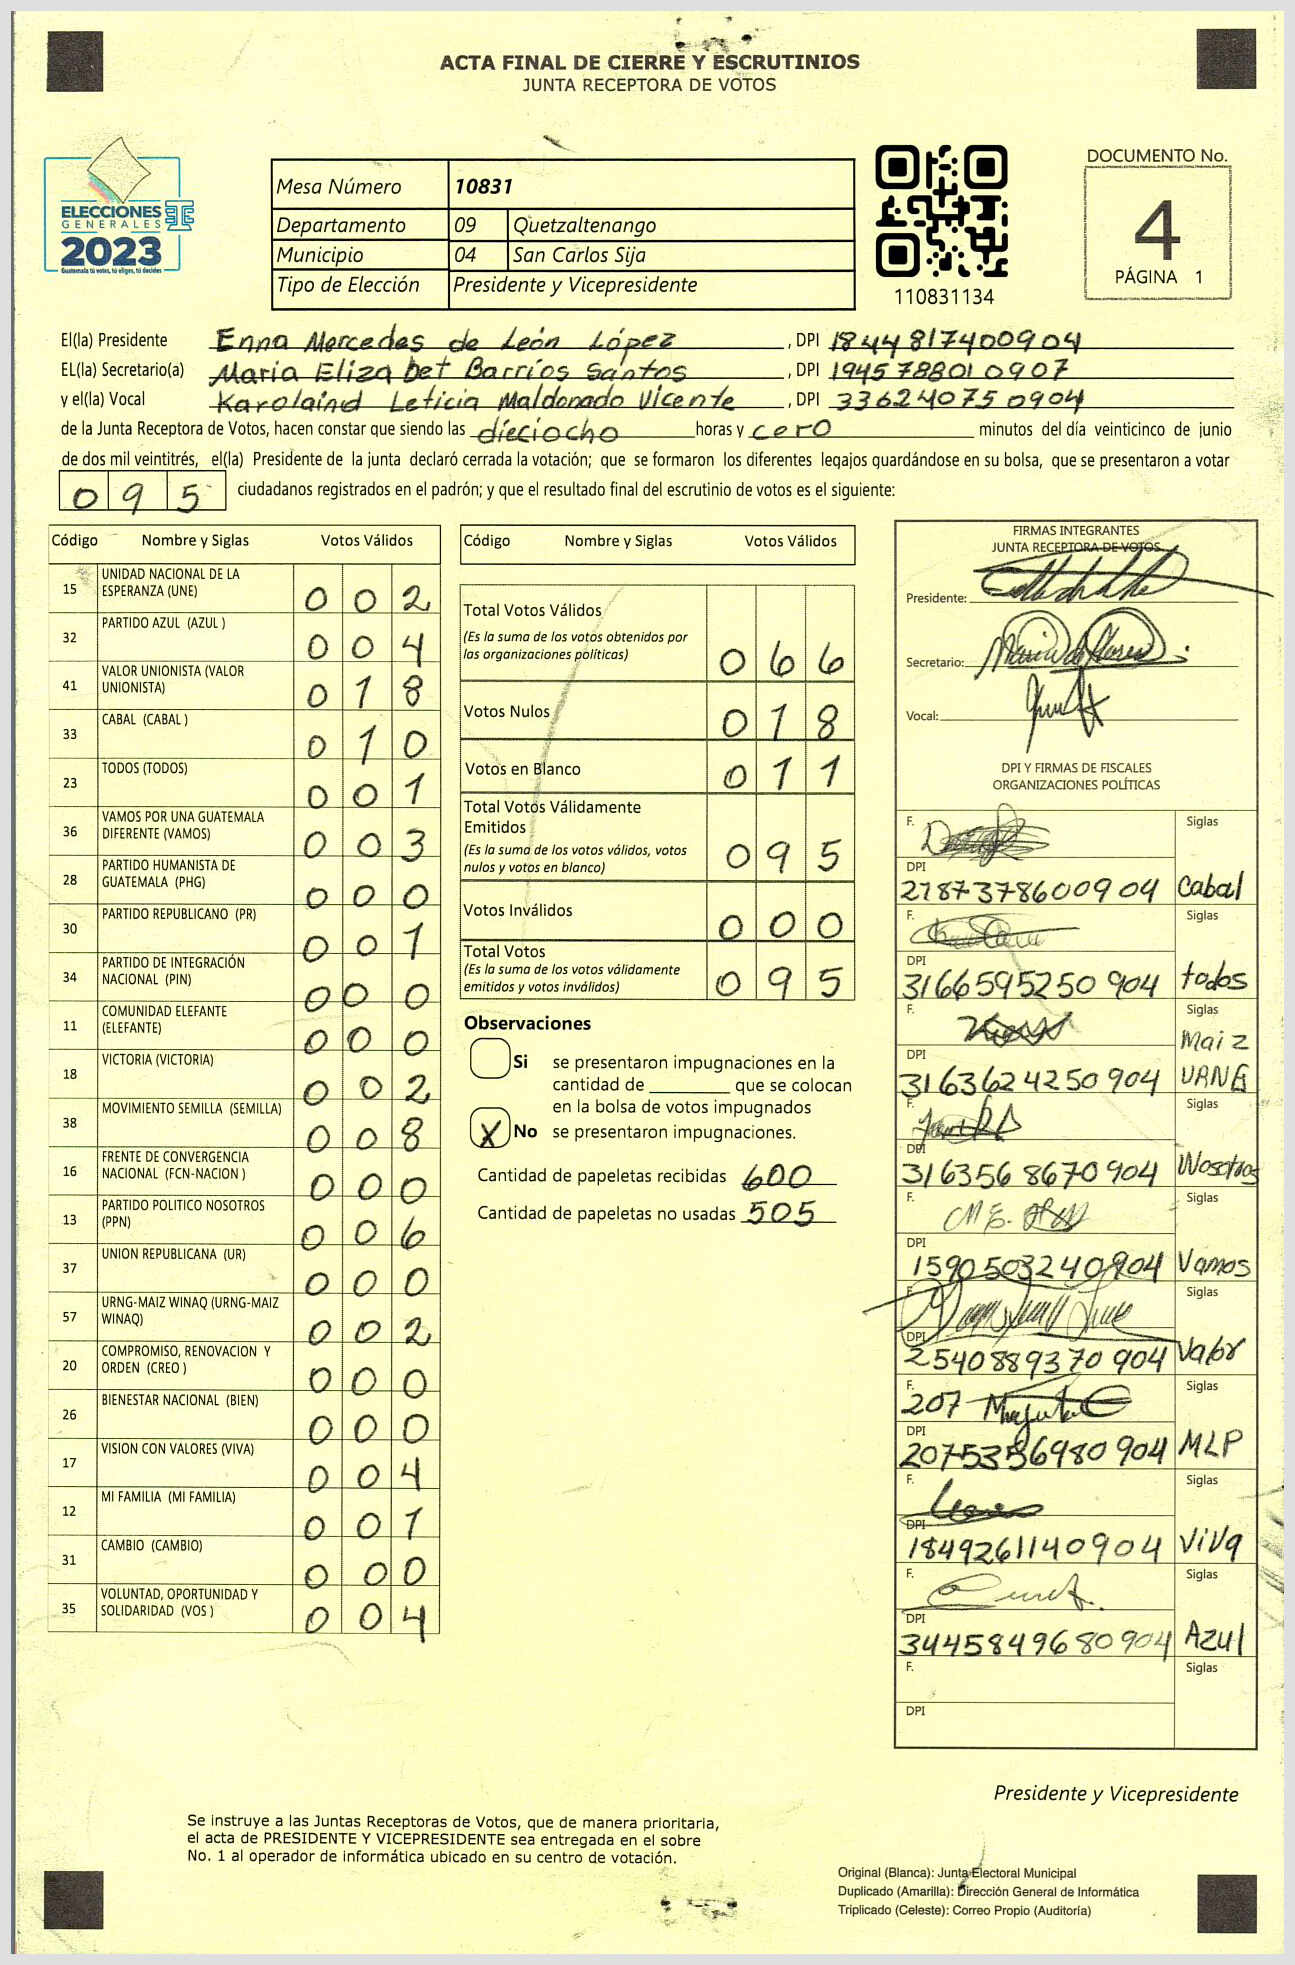 ACTA FINAL DE CIERRE Y ESCRUTINIOS
JUNTA RECEPTORA DE VOTOS
ELECCIONES
GENERALES
2023
Guatemala tú votes, tú eliges, tú decides
Mesa Número 10831
Departamento 09 Quetzaltenango
Municipio 04 San Carlos Sija
Tipo de Elección Presidente y Vicepresidente
110831134
DOCUMENTO No.
4
PÁGINA 1
El(la) Presidente Enna Mercedes de León López, DPI 1844817400904
EL(la) Secretario(a) Maria Elizabet Barrios Santos, DPI 1945788010907
y el(la) Vocal Karolaind Leticia Maldonado Vicente, DPI 336240750904
de la Junta Receptora de Votos, hacen constar que siendo las dieciocho horas y cero minutos del día veinticinco de junio
de dos mil veintitrés, el(la) Presidente de la junta declaró cerrada la votación; que se formaron los diferentes legajos guardándose en su bolsa, que se presentaron a votar
095 ciudadanos registrados en el padrón; y que el resultado final del escrutinio de votos es el siguiente:
Código Nombre y Siglas Votos Válidos
15 UNIDAD NACIONAL DE LA ESPERANZA (UNE) 002
32 PARTIDO AZUL (AZUL ) 004
41 VALOR UNIONISTA (VALOR UNIONISTA) 018
33 CABAL (CABAL ) 010
23 TODOS (TODOS) 001
36 VAMOS POR UNA GUATEMALA DIFERENTE (VAMOS) 003
28 PARTIDO HUMANISTA DE GUATEMALA (PHG) 000
30 PARTIDO REPUBLICANO (PR) 001
34 PARTIDO DE INTEGRACIÓN NACIONAL (PIN) 000
11 COMUNIDAD ELEFANTE (ELEFANTE) 000
18 VICTORIA (VICTORIA) 002
38 MOVIMIENTO SEMILLA (SEMILLA) 008
16 FRENTE DE CONVERGENCIA NACIONAL (FCN-NACION ) 000
13 PARTIDO POLITICO NOSOTROS (PPN) 006
37 UNION REPUBLICANA (UR) 000
57 URNG-MAIZ WINAQ (URNG-MAIZ WINAQ) 002
20 COMPROMISO, RENOVACION Y ORDEN (CREO ) 000
26 BIENESTAR NACIONAL (BIEN) 000
17 VISION CON VALORES (VIVA) 004
12 MI FAMILIA (MI FAMILIA) 001
31 CAMBIO (CAMBIO) 000
35 VOLUNTAD, OPORTUNIDAD Y SOLIDARIDAD (VOS ) 004
Código Nombre y Siglas Votos Válidos
Total Votos Válidos
(Es la suma de los votos obtenidos por
las organizaciones políticas) 066
Votos Nulos 018
Votos en Blanco 011
Total Votos Válidamente
Emitidos
(Es la suma de los votos válidos, votos
nulos y votos en blanco) 095
Votos Inválidos 000
Total Votos
(Es la suma de los votos válidamente
emitidos y votos inválidos) 095
Observaciones
Si se presentaron impugnaciones en la
cantidad de ________ que se colocan
en la bolsa de votos impugnados
X No se presentaron impugnaciones.
Cantidad de papeletas recibidas 600
Cantidad de papeletas no usadas 505
FIRMAS INTEGRANTES
JUNTA RECEPTORA DE VOTOS
Presidente:
Secretario:
Vocal:
DPI Y FIRMAS DE FISCALES
ORGANIZACIONES POLÍTICAS
F. Siglas
DPI
2787378600904 Cabal
F. Siglas
DPI
3166595250904 todos
F. Siglas
Maiz
DPI
3163624250904 URNG
F. Siglas
DPI
3163568670904 Nosotros
F. Siglas
DPI
1590503240904 Vamos
F. Siglas
DPI
2540889370904 Valor
F. Siglas
207
DPI
2075356980904 MLP
F. Siglas
DPI
1849261140904 ViVa
F. Siglas
DPI
3445849680904 Azul
F. Siglas
DPI
Presidente y Vicepresidente
Se instruye a las Juntas Receptoras de Votos, que de manera prioritaria,
el acta de PRESIDENTE Y VICEPRESIDENTE sea entregada en el sobre
No. 1 al operador de informática ubicado en su centro de votación.
Original (Blanca): Junta Electoral Municipal
Duplicado (Amarilla): Dirección General de Informática
Triplicado (Celeste): Correo Propio (Auditoría)